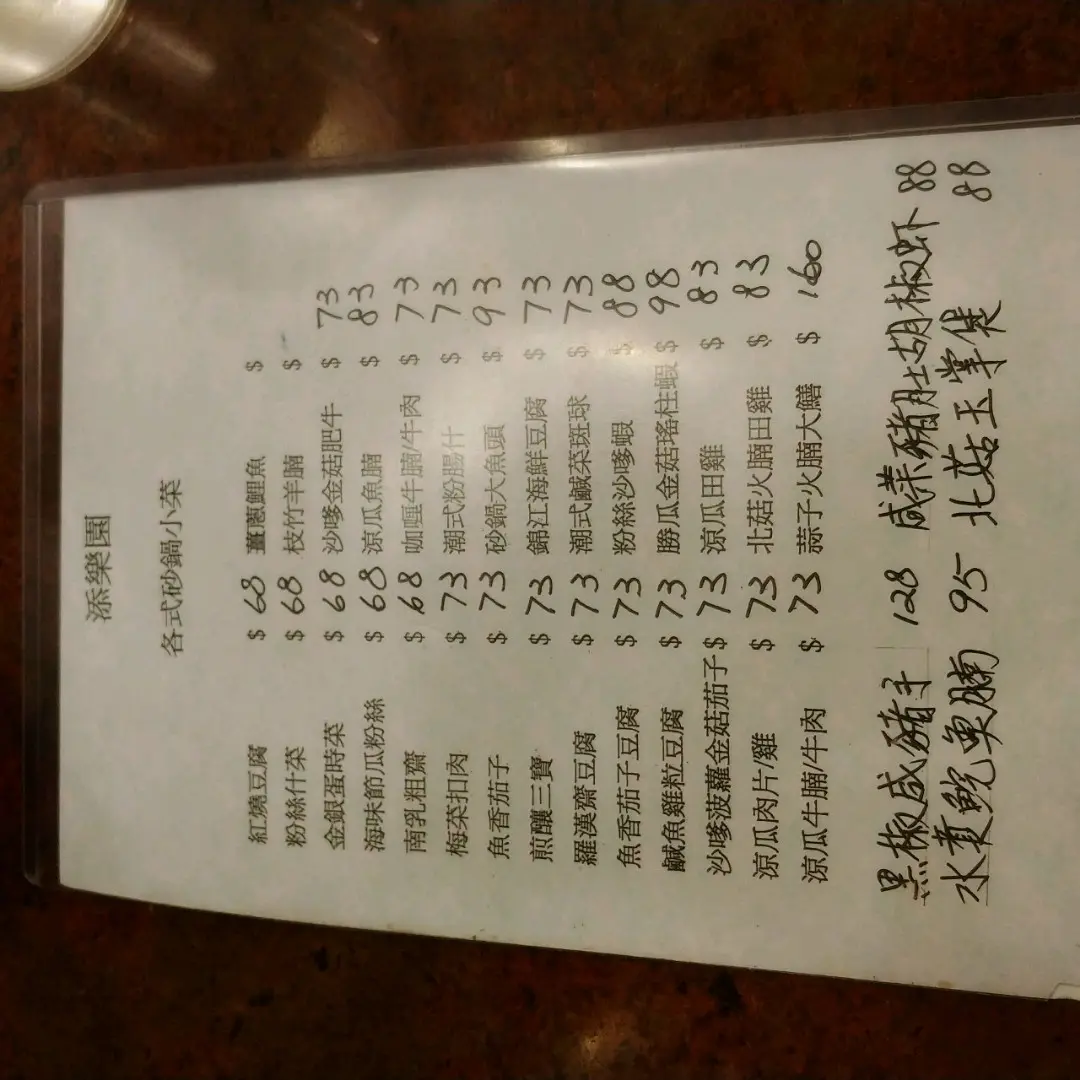 添樂園
各式砂鍋小菜
紅燒豆腐 $ 68 薑蔥鯉魚 $
粉絲什菜 $ 68 枝竹羊腩 $
金銀蛋時菜 $ 68 沙嗲金菇肥牛 $ 73
海味節瓜粉絲 $ 68 涼瓜魚腩 $ 83
南乳粗齋 $ 68 咖喱牛腩/牛肉 $ 73
梅菜扣肉 $ 73 潮式粉腸什 $ 73
魚香茄子 $ 73 砂鍋大魚頭 $ 93
煎釀三寶 $ 73 錦江海鮮豆腐 $ 73
羅漢齋豆腐 $ 73 潮式鹹菜斑球 $ 73
魚香茄子豆腐 $ 73 粉絲沙嗲蝦 $ 88
鹹魚雞粒豆腐 $ 73 勝瓜金菇瑤柱蝦 $ 98
沙嗲菠蘿金菇茄子 $ 73 涼瓜田雞 $ 83
涼瓜肉片/雞 $ 73 北菇火腩田雞 $ 83
涼瓜牛腩/牛肉 $ 73 蒜子火腩大鱔 $ 160
黑椒咸豬手 128 咸菜豬肚胡椒虾 88
水煮鯇魚腩 95 北菇玉掌煲 88